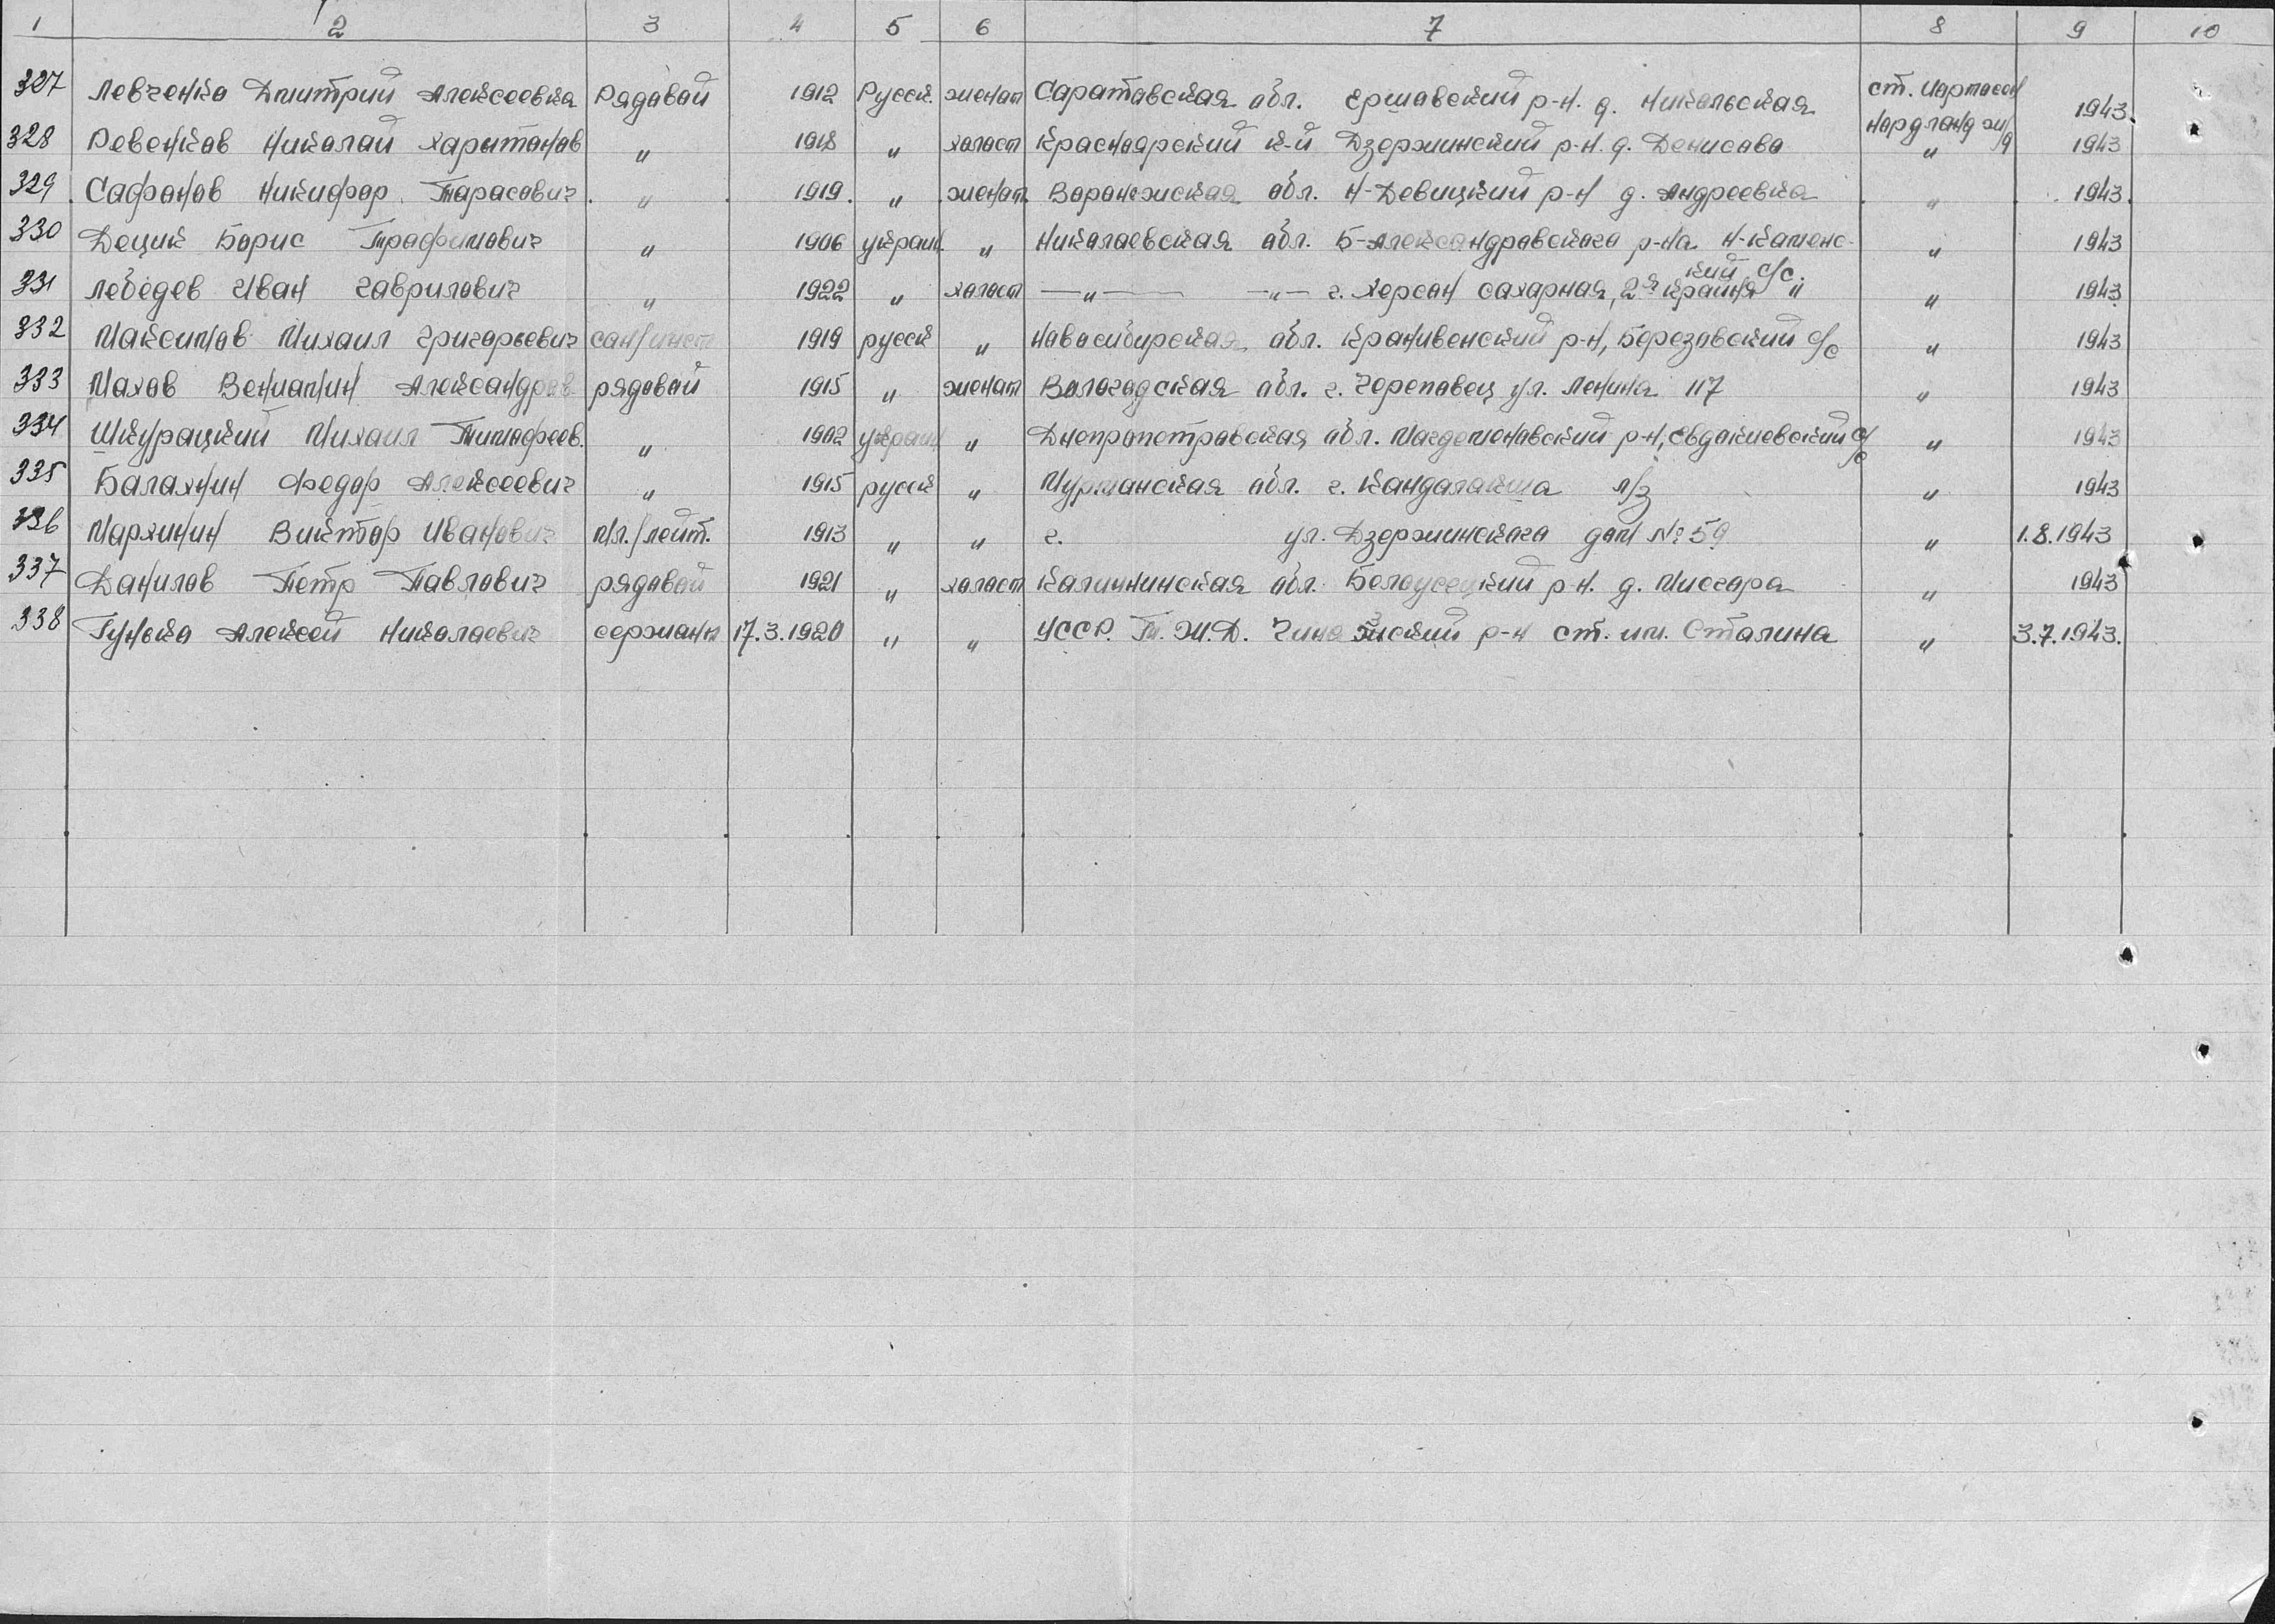 1 2 3 4 5 6 7 8 9 10
327 Левченко Дмитрий Алексеевка Рядовой 1912 Русск. женат Саратовская обл. Ершовский р-н. д. Никольская ст. 1943.
Нордланд ж/д
328 Ревенков Николай Харитонов " 1918 " холост Красноярский к-й Дзержинский р-н. д. Денисово " 1943
329 Сафонов Никифор Тарасович " 1919. " женат Воронежская обл. Н-Девицкий р-н д. Андреевка " 1943.
330 Децик Борис Трофимович " 1906 украин. " Николаевская обл. Б-Александровского р-на Н-Каменс- " 1943
кий с/с.
331 Лебедев Иван Гаврилович " 1922 " холост —"— —"— г. Херсон Сахарная, 2я крайня " " 1943
332 Максимов Михаил Григорьевич сан/инст 1919 русск " Новосибирская обл. Крапивенский р-н, Березовский с/с " 1943
333 Махов Вениамин Александров рядовой 1915 " женат Вологодская обл. г. Череповец ул. Ленина 117 " 1943
334 Шкурацкий Михаил Тимофеев. " 1902 украин " Днепропетровская обл. Магдеменовский р-н, Евдокиевский с/с " 1943
335 Балахнин Федор Алексеевич " 1915 русск " Мурманская обл. г. Кандалакша л/з " 1943
336 Мархинин Виктор Иванович мл./лейт. 1913 " " г. ул. Дзержинского дом № 59 " 1.8.1943
337 Данилов Петр Павлович рядовой 1921 " холост Калининская обл. р-н. д. " 1943
338 Гунька Алексей Николаевич сержант 17.3.1920 " " УССР. Т. Ж. Д. р-н ст. им. Сталина " 3.7.1943.